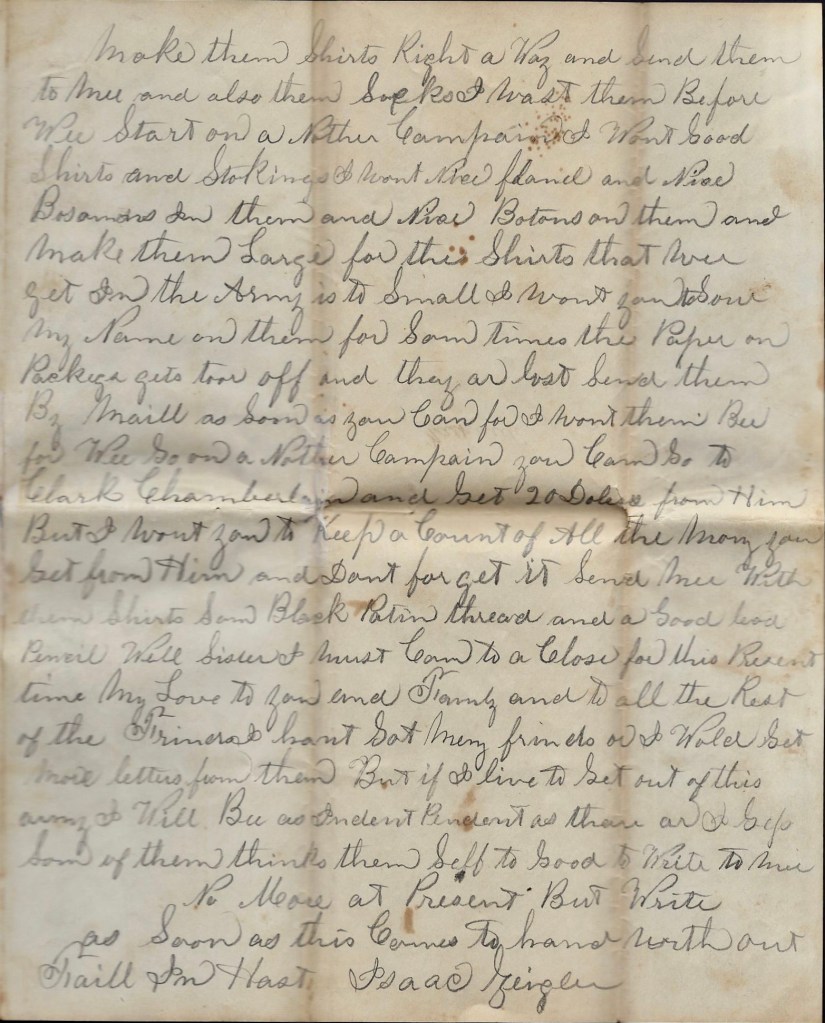 Make them Shirts Right a Way and Send them
to Mee and also them Socks I Want them Before
Wee Start on a Nother Campain I Wont Good
Shirts and Stokings I wont Nice fland and Nice
Bosams In them and Nice Botons on them and
Make them Large for the Shirts that Wee
get In the Army is to Small I Wont you to Sow
My Name on them for Som times the Paper on
Packega gets toor off and they ar lost Send them
By Maill as Soon as you Can for I wont them Bee
for Wee Go on a Nother Campain you Can Go to
Clark Chamberlain and Get 20 Dolers from Him
But I wont you to Keep a Count of All the Mony you
Get from Him and Dont for get it Send Mee With
them Shirts Som Black Patin thread and a Good lead
Pencil Well Sister I Must Com to a Close for this Present
time My Love to you and Family and to all the Rest
of the Frinds I hant Got Meny frinds or I Wold Get
More letters from them But if I live to Get out of this
army I Will Bee as Indent Pendent as thare ar I Gess
Som of them thinks them Self to Good to Write to Mee
No More at Present But Write
as Soon as this Comes to hand With out
Faill In Hast Isaac Zeigler